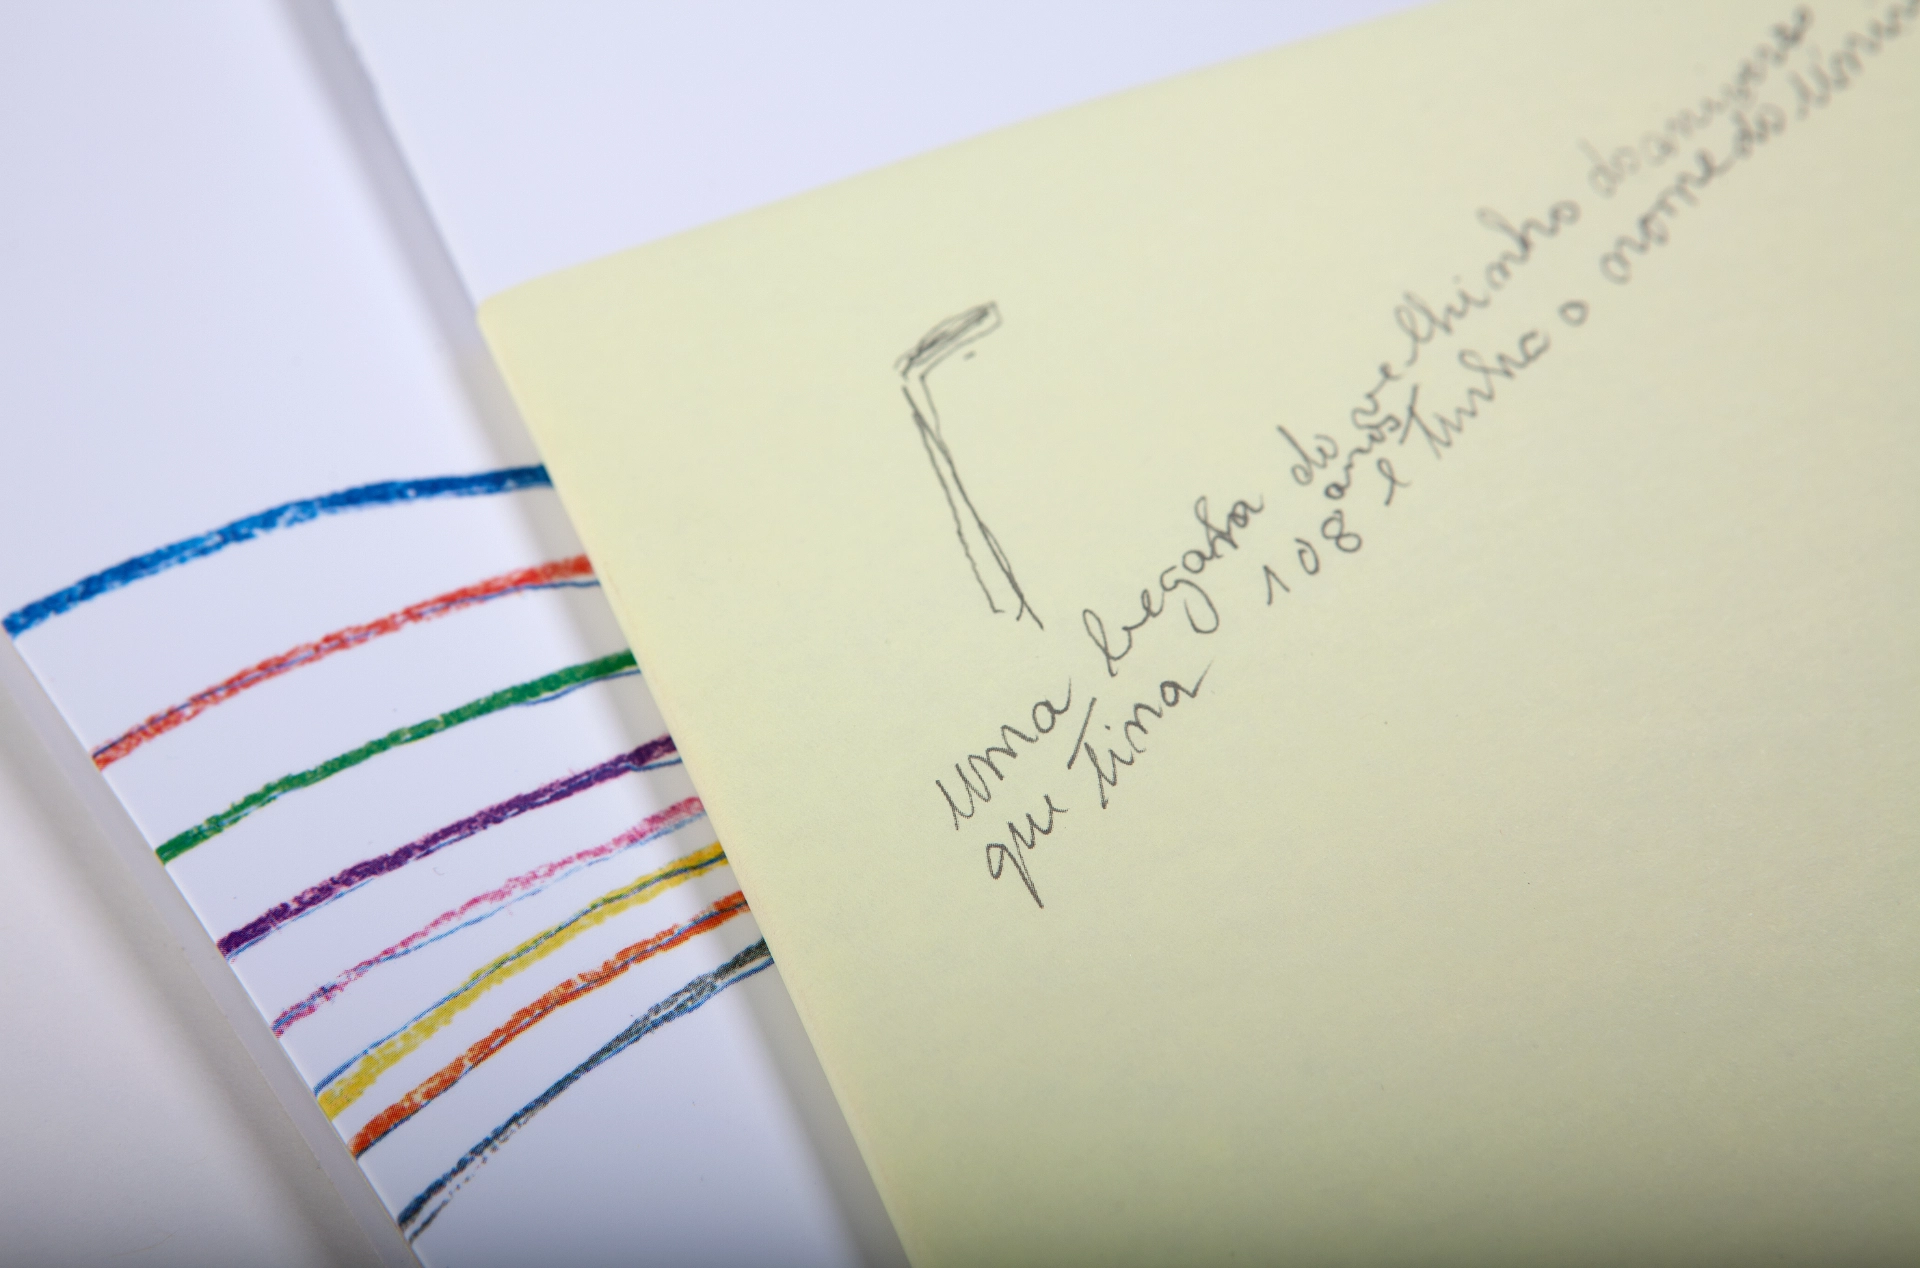 uma begala do velhinho do
que tina 108 anos e tinha o nome do